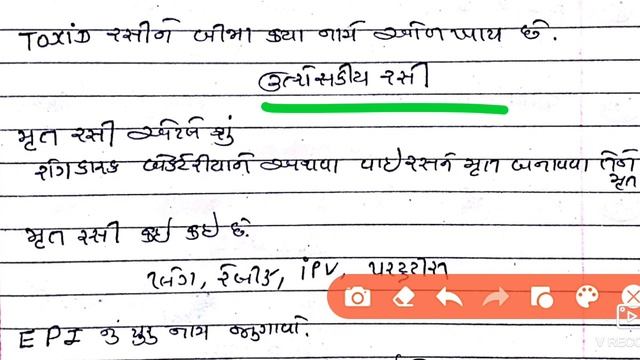 TOXID રસીને બીજા કયા નામે ઓળખાય છે.
રસી
મૃત રસી એટલે શું
રોગકારક બેક્ટેરીયાને અથવા વાઇરસને મૃત બનાવવા તેને
મૃત
મૃત રસી કઇ કઇ છે.
પ્લેગ, રેબીઝ, IPV, પરટુસીસ
EPI નું પુરુ નામ જણાવો.
V RECO